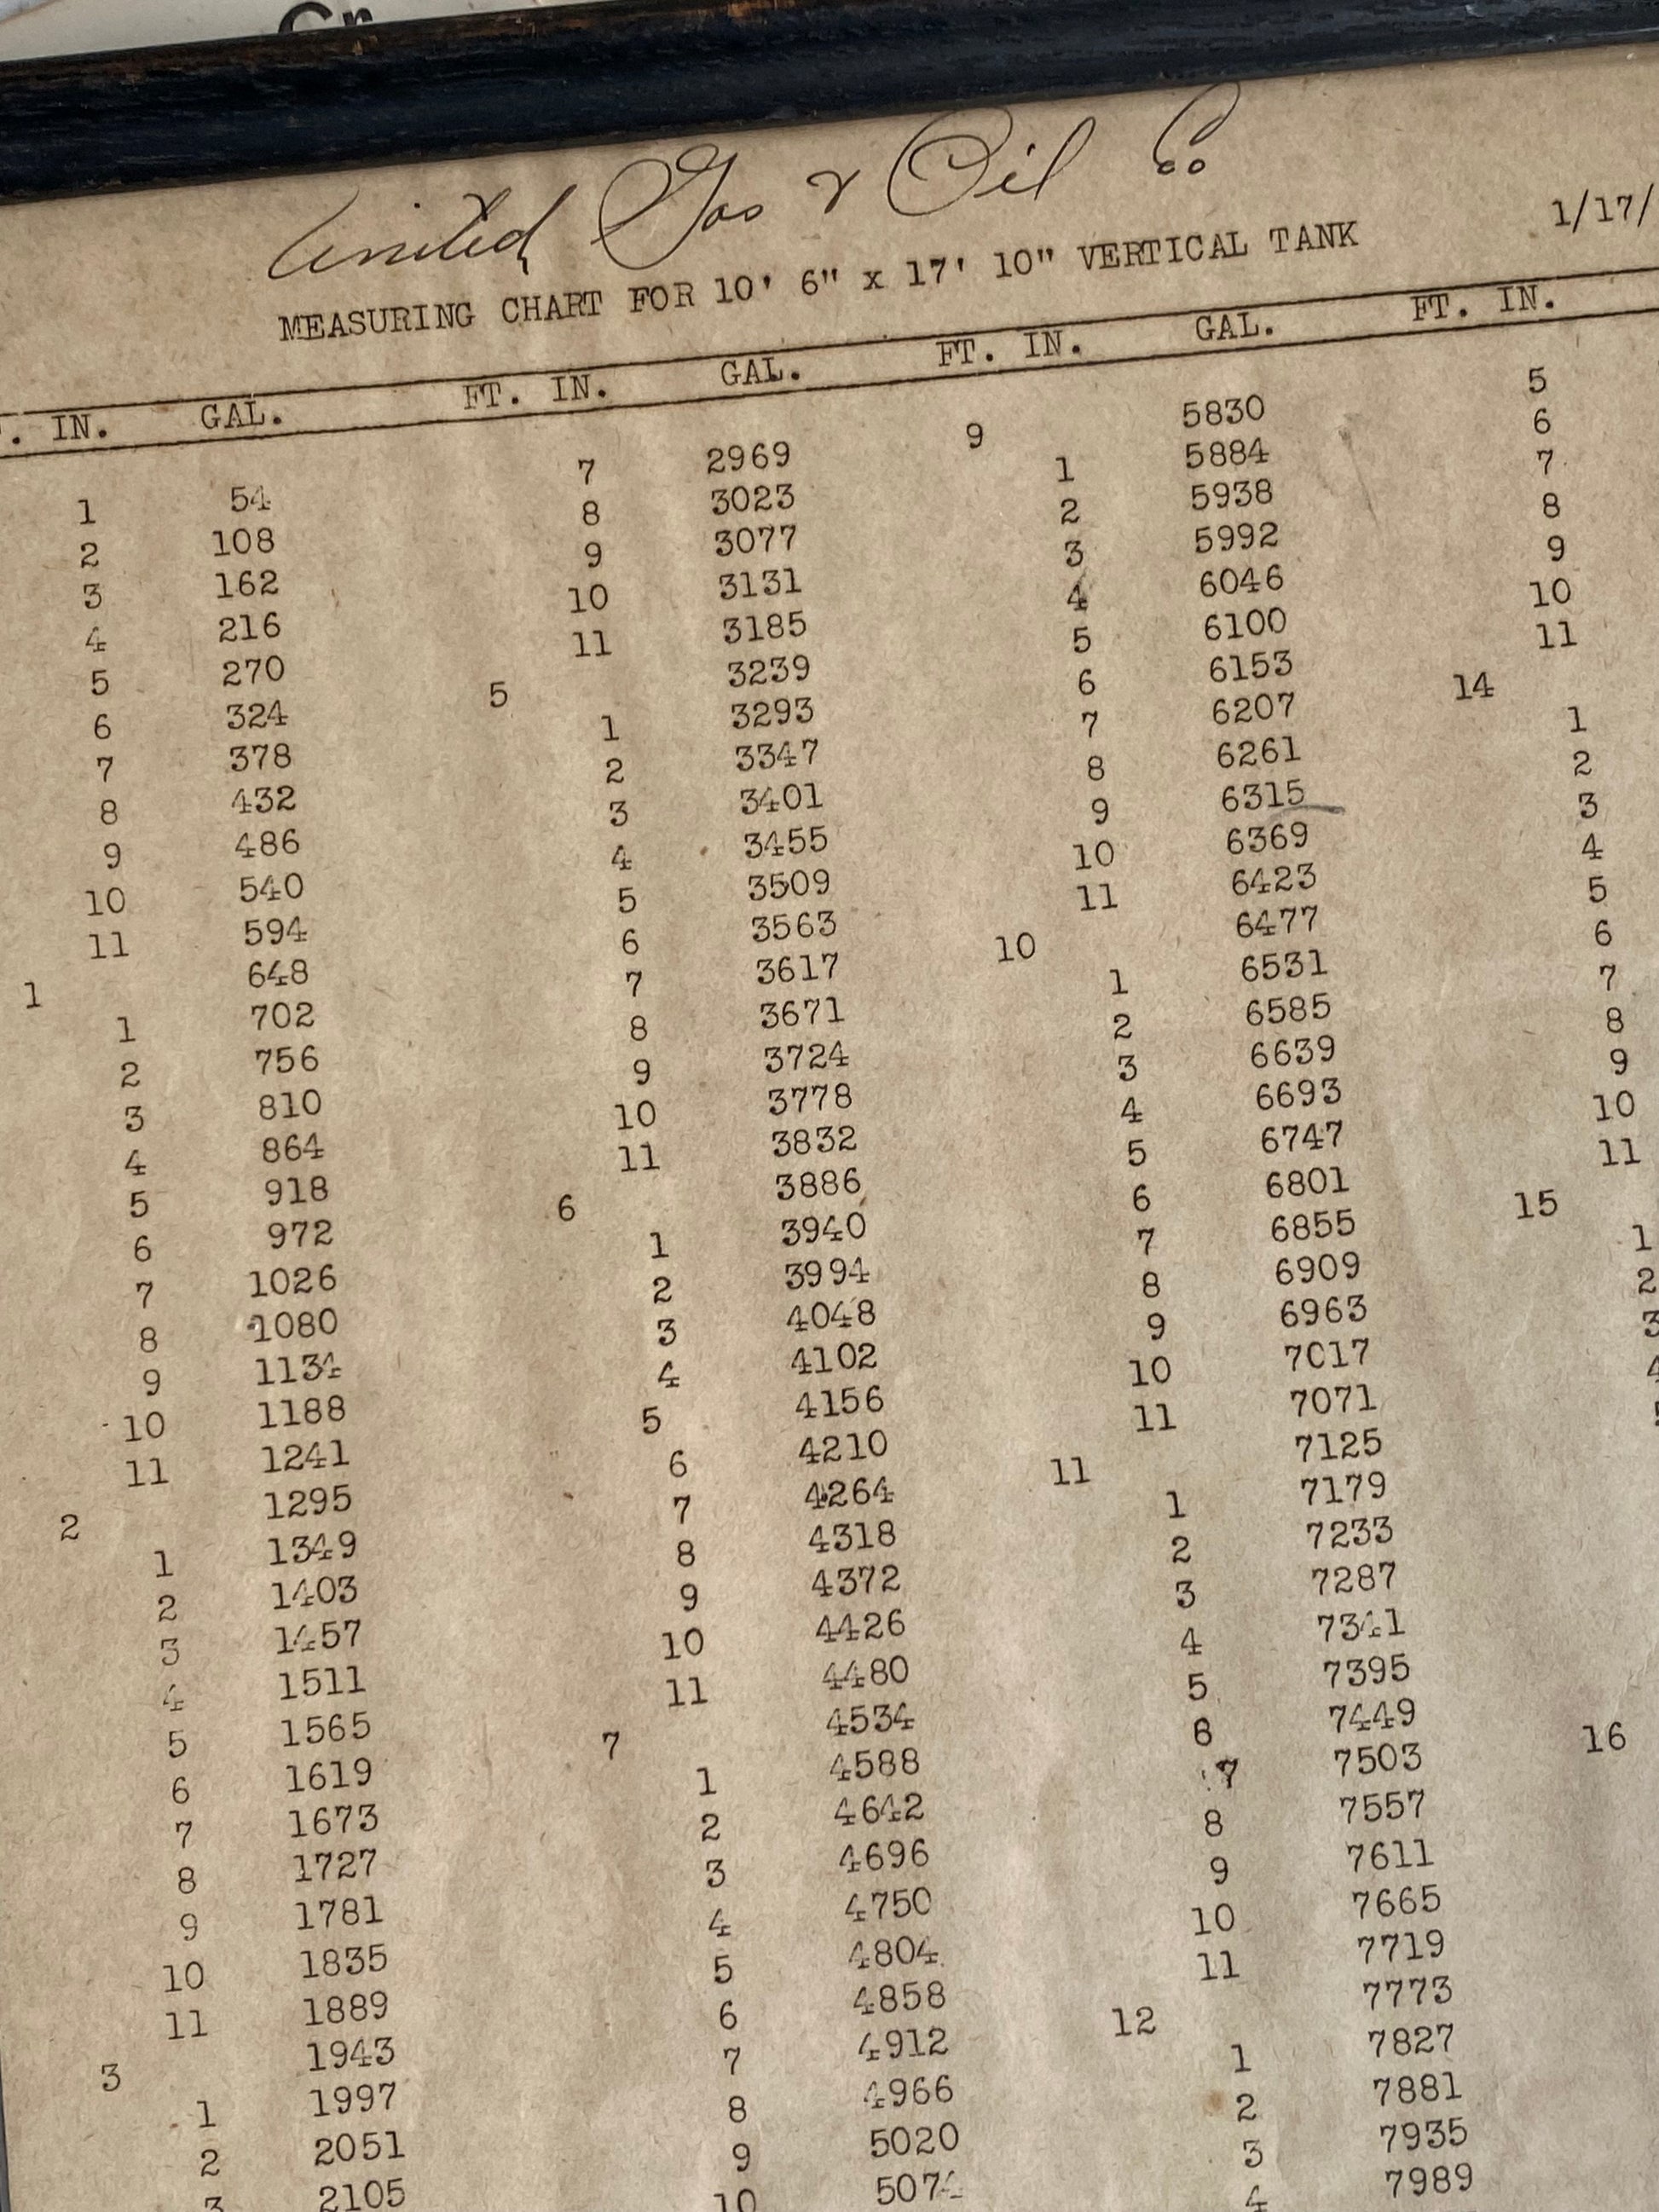 United Gas & Oil Co
1/17/
MEASURING CHART FOR 10' 6" x 17' 10" VERTICAL TANK
. IN. GAL. FT. IN. GAL. FT. IN. GAL. FT. IN.
1 54 7 2969 9 5830 5
2 108 8 3023 1 5884 6
3 162 9 3077 2 5938 7
4 216 10 3131 3 5992 8
5 270 11 3185 4 6046 9
6 324 5 3239 5 6100 10
7 378 1 3293 6 6153 11
8 432 2 3347 7 6207 14
9 486 3 3401 8 6261 1
10 540 4 3455 9 6315 2
11 594 5 3509 10 6369 3
1 648 6 3563 11 6423 4
1 702 7 3617 10 6477 5
2 756 8 3671 1 6531 6
3 810 9 3724 2 6585 7
4 864 10 3778 3 6639 8
5 918 11 3832 4 6693 9
6 972 6 3886 5 6747 10
7 1026 1 3940 6 6801 11
8 1080 2 3994 7 6855 15
9 1134 3 4048 8 6909 1
10 1188 4 4102 9 6963 2
11 1241 5 4156 10 7017 3
2 1295 6 4210 11 7071 4
1 1349 7 4264 11 7125
2 1403 8 4318 1 7179
3 1457 9 4372 2 7233
4 1511 10 4426 3 7287
5 1565 11 4480 4 7341
6 1619 7 4534 5 7395
7 1673 1 4588 6 7449
8 1727 2 4642 7 7503 16
9 1781 3 4696 8 7557
10 1835 4 4750 9 7611
11 1889 5 4804 10 7665
3 1943 6 4858 11 7719
1 1997 7 4912 12 7773
2 2051 8 4966 1 7827
3 2105 9 5020 2 7881
10 5074 3 7935
4 7989